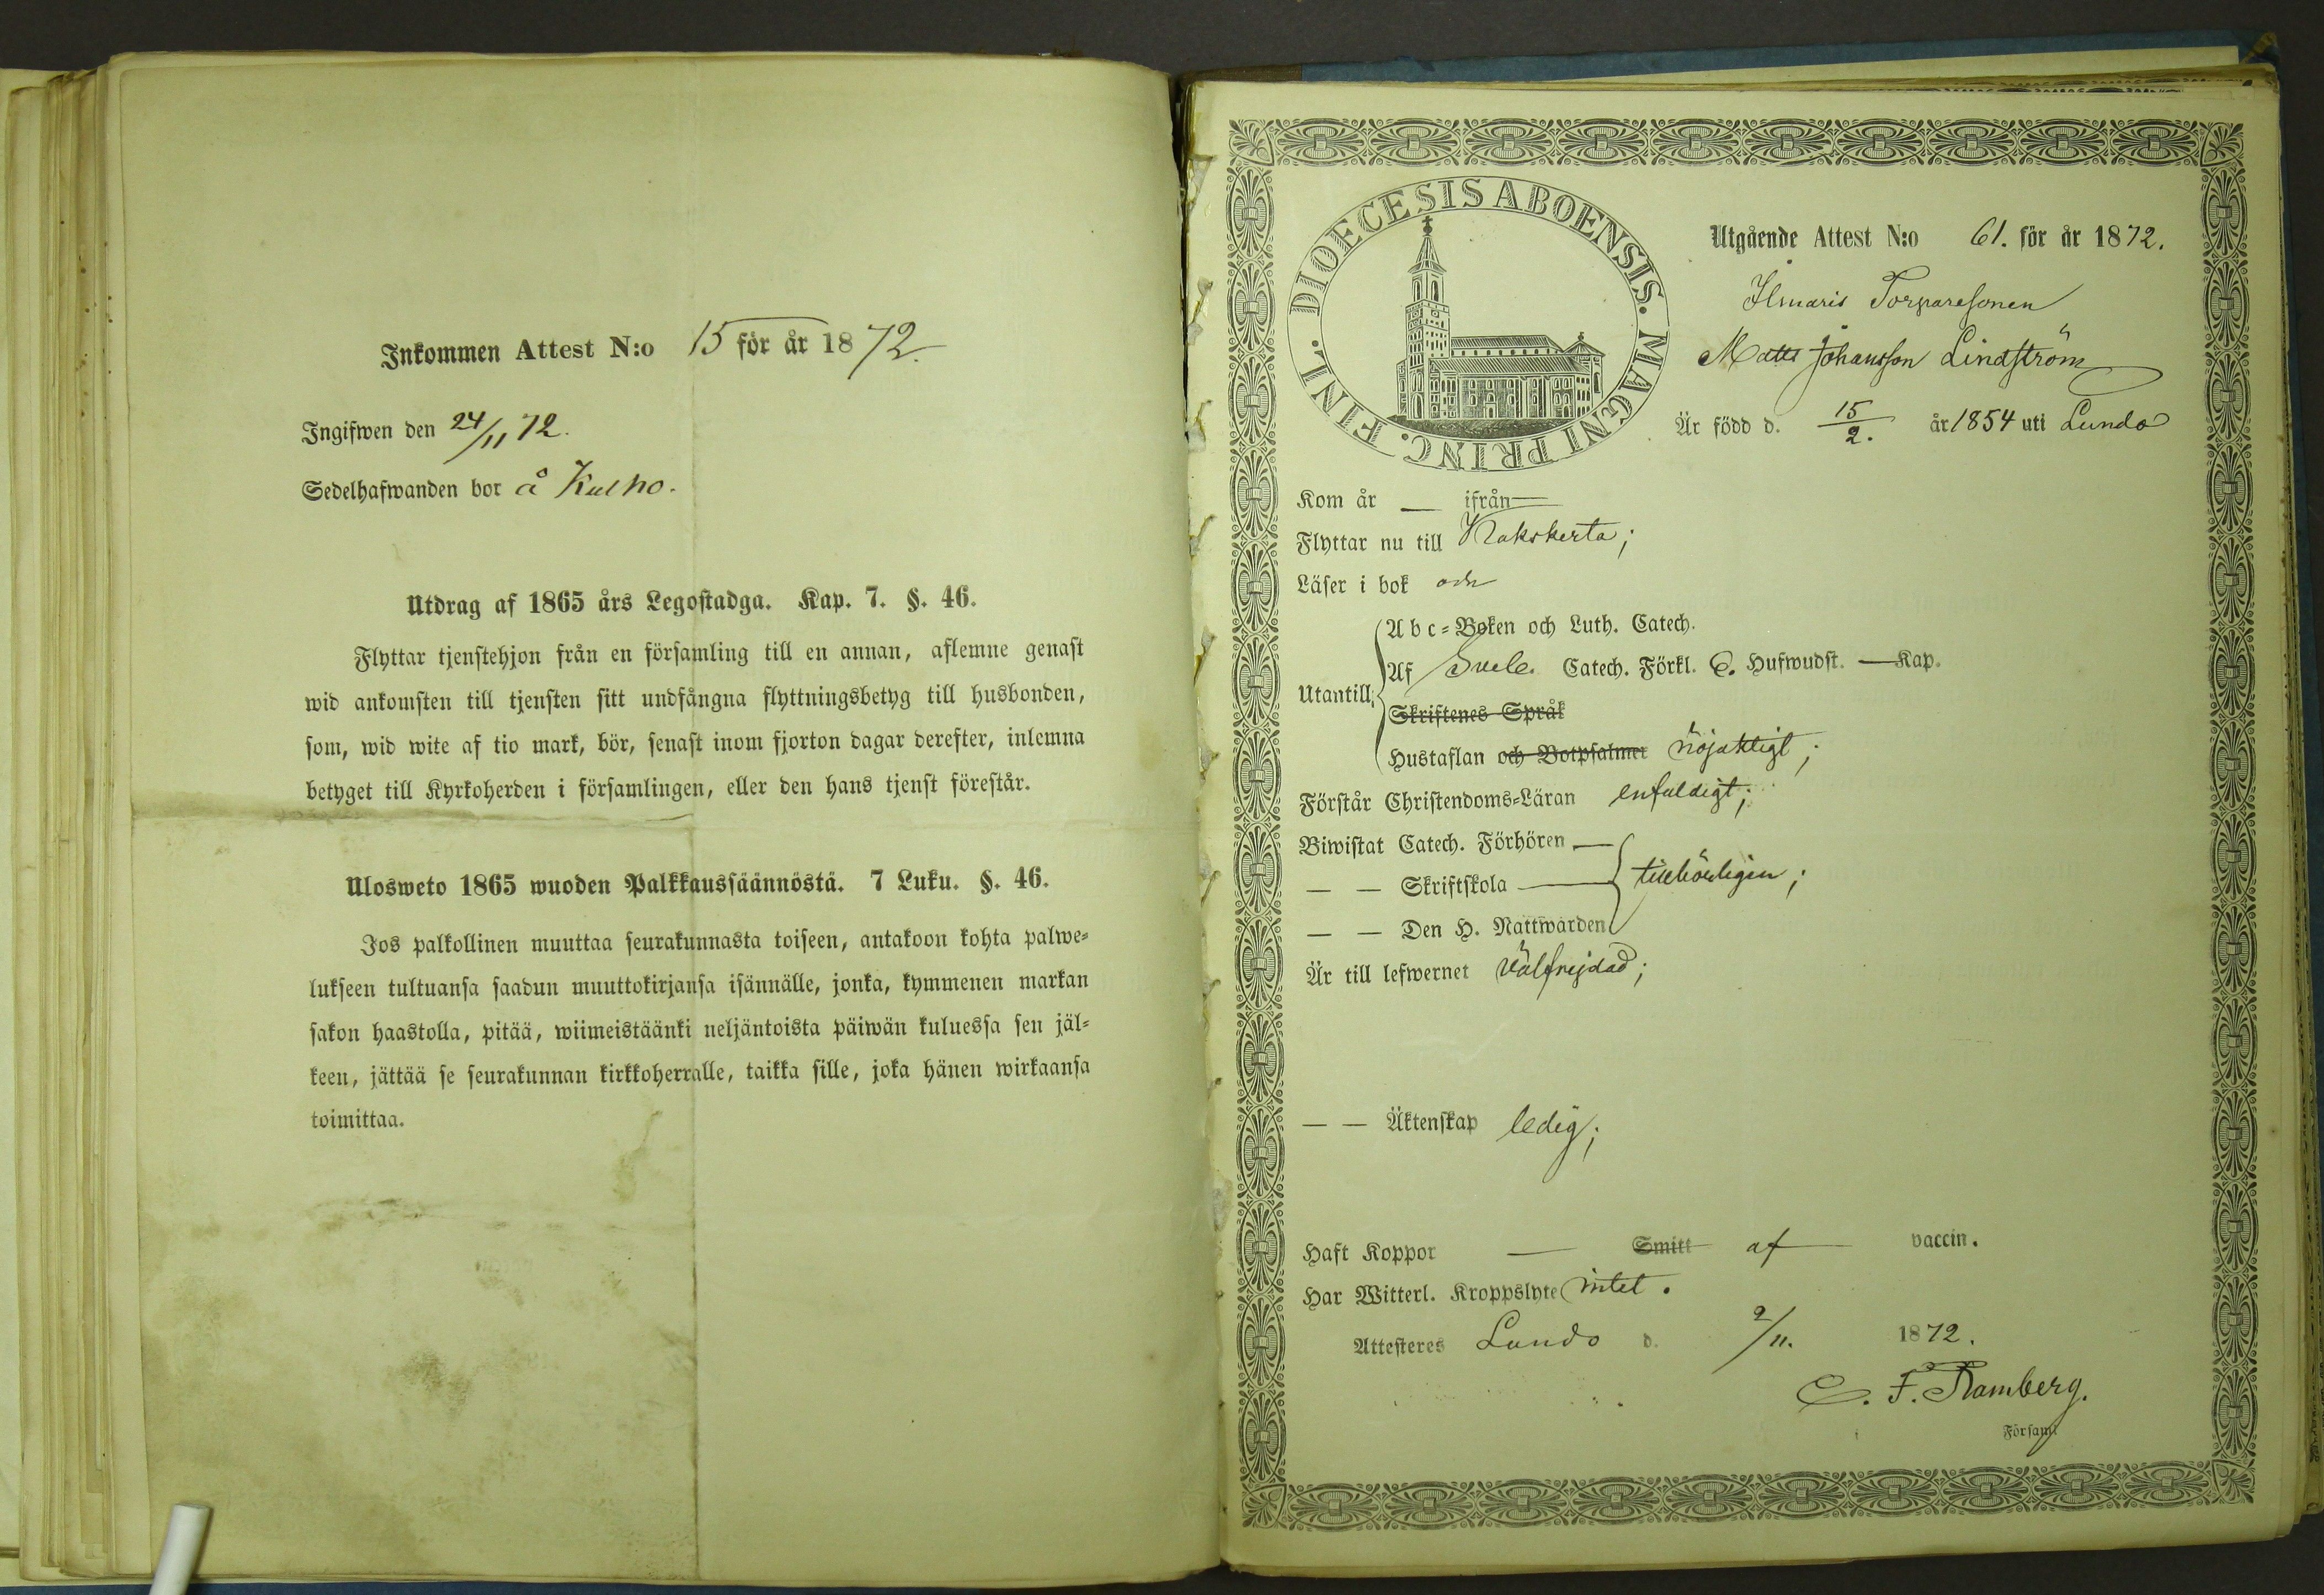 Inkommen Attest N:o 15 för år 1872.
Ingifwen den 24/11 72.
Sedelhafwanden bor å Kulho.
Utdrag af 1865 års Legostadga. Kap. 7. §. 46.
Flyttar tjenstehjon från en församling till en annan, aflemne genast
wid ankomsten till tjensten sitt undfångna flyttningsbetyg till husbonden,
som, wid wite af tio mark, bör, senast inom fjorton dagar derefter, inlemna
betyget till Kyrkoherden i församlingen, eller den hans tjenst förestår.
Ulosweto 1865 wuoden Palkkaussäännöstä. 7 Luku. §. 46.
Jos palkollinen muuttaa seurakunnasta toiseen, antakoon kohta palwe-
lukseen tultuansa saadun muuttokirjansa isännälle, jonka, kymmenen markan
sakon haastolla, pitää, wiimeistäänki neljäntoista päiwän kuluessa sen jäl-
keen, jättää se seurakunnan kirkkoherralle, taikka sille, joka hänen wirkaansa
toimittaa.
DIOECESIS ABOENSIS. MAGNI PRINC. FINL.
Utgående Attest N:o 61. för år 1872.
Ilmaris Torparesonen
Matts Johansson Lindström
Är född d. 15/2. år 1854 uti Lundo
Kom år — ifrån —
Flyttar nu till Kakskerta;
Läser i bok och
Utantill:
Abc-Boken och Luth. Catech.
Af Sveb. Catech. Förkl. 6. Hufwudst. — Kap.
Skriftenes Språk
Hustaflan och Botpsalmer nöjaktigt;
Förstår Christendoms-Läran enfaldigt;
Biwistat Catech. Förhören —
— — Skriftskola — tillbörligen;
— — Den H. Nattwarden
Är till lefwernet välfrejdad;
— — Äktenskap ledig;
Haft Koppor — Smitt af vaccin.
Har Witterl. Kroppslyte intet.
Attesteres Lundo d. 2/11. 1872.
C. F. Ramberg.
Förſaml